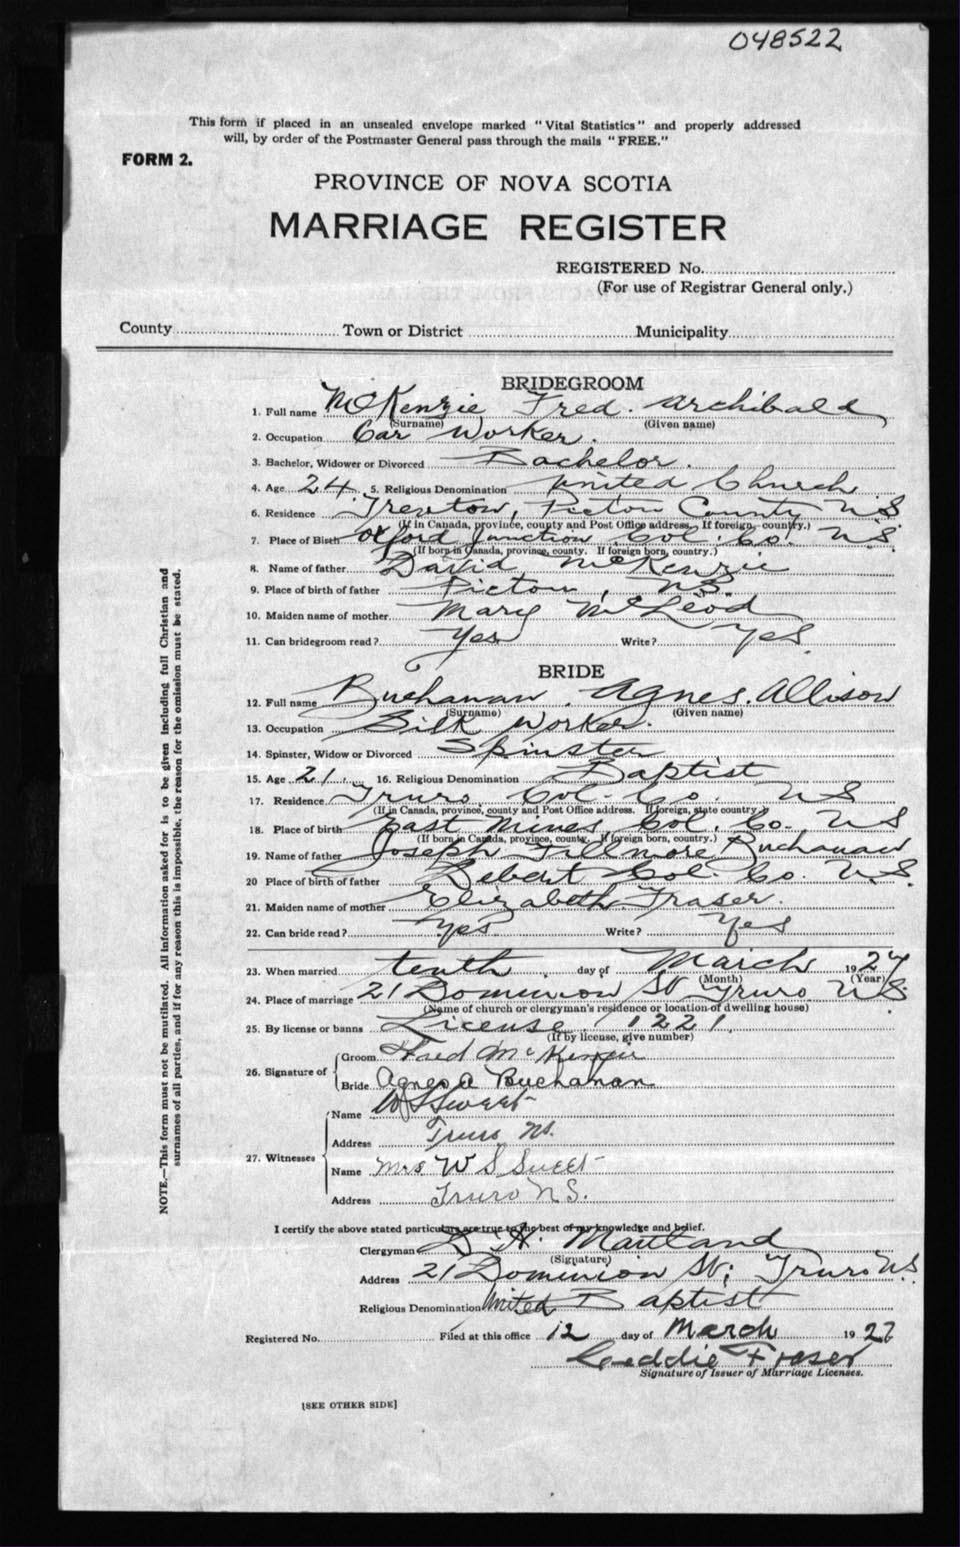 048522
This form if placed in an unsealed envelope marked "Vital Statistics" and properly addressed
will, by order of the Postmaster General pass through the mails "FREE."
FORM 2.
PROVINCE OF NOVA SCOTIA
MARRIAGE REGISTER
REGISTERED No.
(For use of Registrar General only.)
County Town or District Municipality
BRIDEGROOM
1. Full name McKenzie Fred. Archibald
(Surname) (Given name)
2. Occupation Car Worker.
3. Bachelor, Widower or Divorced Bachelor.
4. Age 24. 5. Religious Denomination United Church
6. Residence Trenton, Pictou County N S
(If in Canada, province, county and Post Office address. If foreign, country.)
7. Place of Birth Oxford Junction Col. Co. N.S.
(If born in Canada, province, county. If foreign born, country.)
8. Name of father David McKenzie
9. Place of birth of father Pictou, N.S.
10. Maiden name of mother Mary McLeod
11. Can bridegroom read? Yes Write? Yes
BRIDE
12. Full name Buchanan. Agnes. Allison
(Surname) (Given name)
13. Occupation Silk Worker.
14. Spinster, Widow or Divorced Spinster
15. Age 21 16. Religious Denomination Baptist
17. Residence Truro Col. Co. N S
(If in Canada, province, county and Post Office address. If foreign, state country.)
18. Place of birth East Mines, Col. Co. N S
(If born in Canada, province, county. If foreign born, country.)
19. Name of father Joseph Fillmore Buchanan
20 Place of birth of father Debert Col. Co. N.S.
21. Maiden name of mother Elizabeth Fraser.
22. Can bride read? Yes Write? Yes
23. When married tenth day of March 1927
(Month) (Year)
24. Place of marriage 21 Dominion St Truro N S
(Name of church or clergyman's residence or location of dwelling house)
25. By license or banns License 1221
(If by license, give number)
26. Signature of Groom Fred McKenzie
Bride Agnes A Buchanan
27. Witnesses Name W S Sweet
Address Truro N.S.
Name Mrs W S Sweet
Address Truro N S.
I certify the above stated particulars are true to the best of my knowledge and belief.
Clergyman Maitland
(Signature)
Address 21 Dominion St; Truro N.S.
Religious Denomination United Baptist
Registered No. Filed at this office 12 day of March 1927
Fraser
Signature of Issuer of Marriage Licenses.
[SEE OTHER SIDE]
NOTE.—This form must not be mutilated. All information asked for is to be given including full Christian and
surnames of all parties, and if for any reason this is impossible, the reason for the omission must be stated.